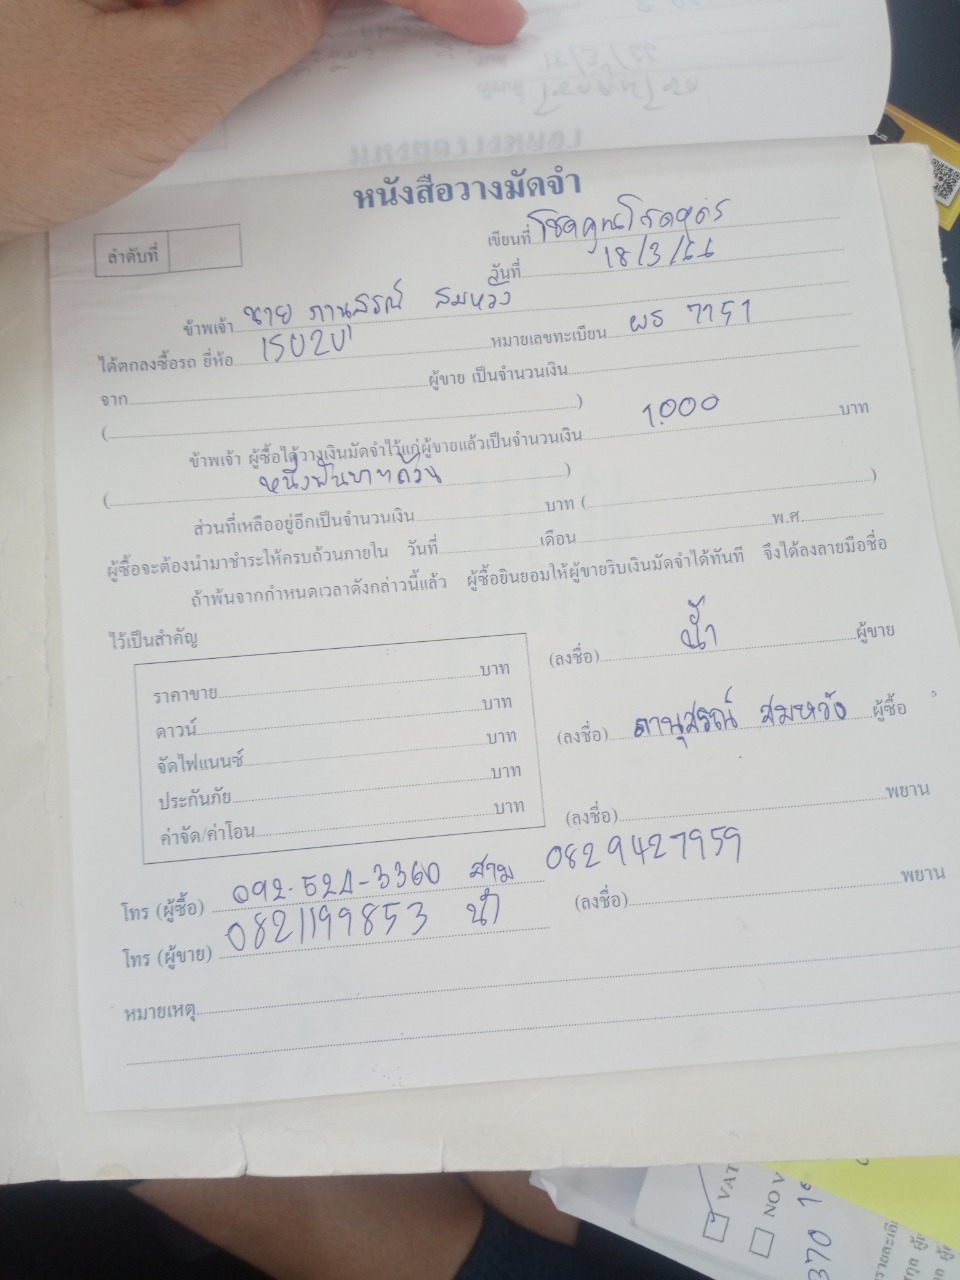 หนังสือวางมัดจำ
ลำดับที่
เขียนที่ โชคคูณโชคอุดร
วันที่ 18/3/66
ข้าพเจ้า นาย ภานุสรณ์ สมหวัง
ได้ตกลงซื้อรถ ยี่ห้อ ISUZU หมายเลขทะเบียน ผธ 7151
จาก ผู้ขาย เป็นจำนวนเงิน
( )
ข้าพเจ้า ผู้ซื้อได้วางเงินมัดจำไว้แก่ผู้ขายแล้วเป็นจำนวนเงิน 1,000 บาท
( หนึ่งพันบาทถ้วน )
ส่วนที่เหลืออยู่อีกเป็นจำนวนเงิน บาท ( )
ผู้ซื้อจะต้องนำมาชำระให้ครบถ้วนภายใน วันที่ เดือน พ.ศ.
ถ้าพ้นจากกำหนดเวลาดังกล่าวนี้แล้ว ผู้ซื้อยินยอมให้ผู้ขายริบเงินมัดจำได้ทันที จึงได้ลงลายมือชื่อ
ไว้เป็นสำคัญ
(ลงชื่อ) น้ำ ผู้ขาย
ราคาขาย บาท
ดาวน์ บาท
(ลงชื่อ) ภานุสรณ์ สมหวัง ผู้ซื้อ
จัดไฟแนนซ์ บาท
ประกันภัย บาท
ค่าจัด/ค่าโอน บาท
(ลงชื่อ) พยาน
โทร (ผู้ซื้อ) 092-524-3360 สาม 0829427959
(ลงชื่อ) พยาน
โทร (ผู้ขาย) 0821199853 น้ำ
หมายเหตุ
VAT
NO V
370